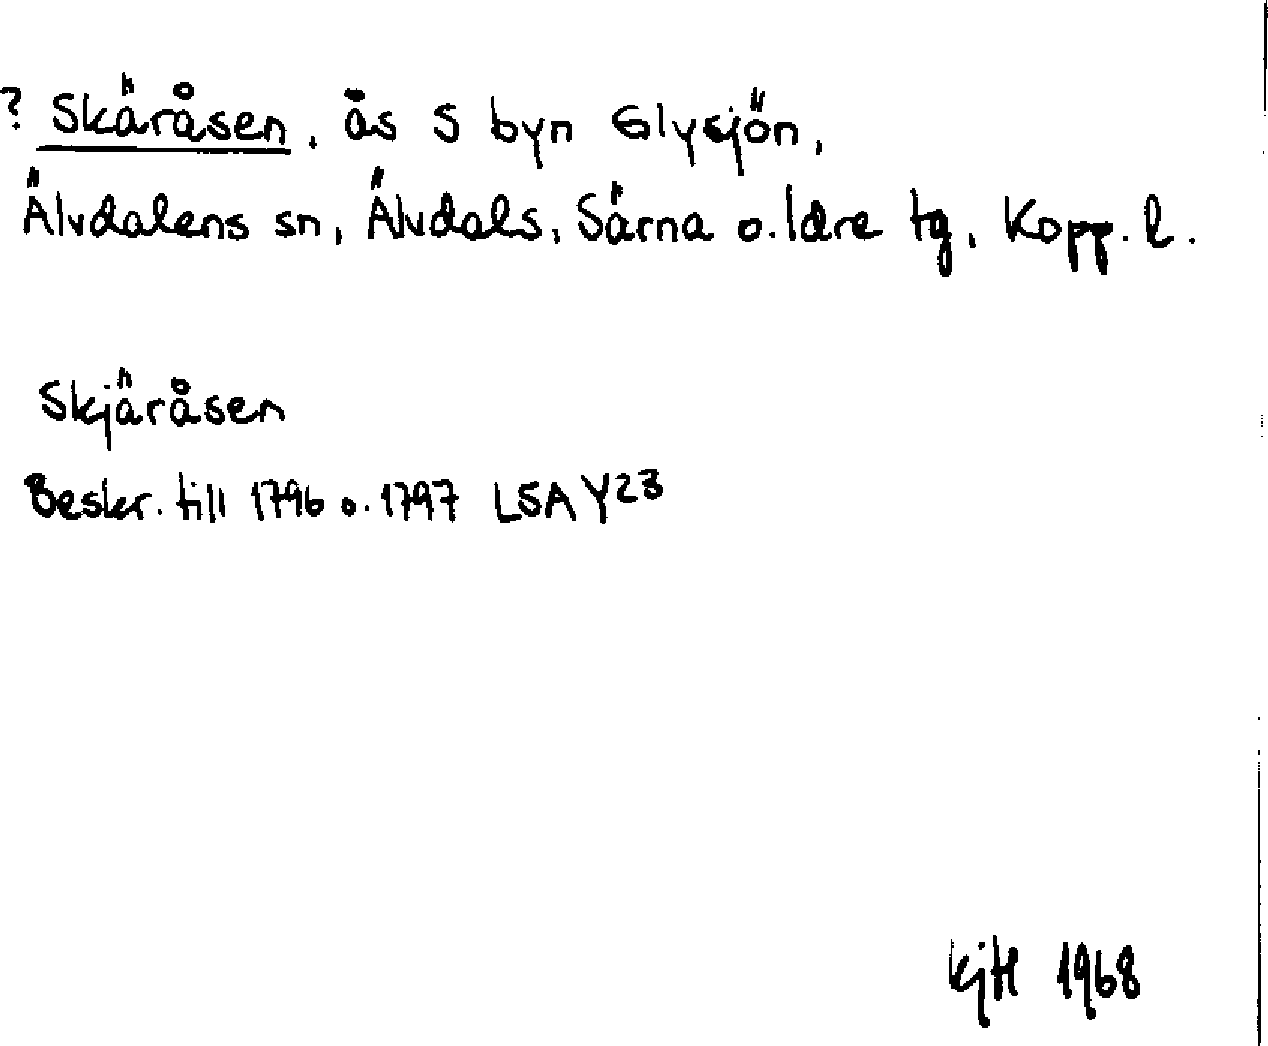 ? Skäråsen, ås S byn Glysjön,
Älvdalens sn, Älvdals, Särna o. Idre tg, Kopp. l.
Skjäråsen
Beskr. till 1796 o. 1797 LSA Y23
KjH 1968